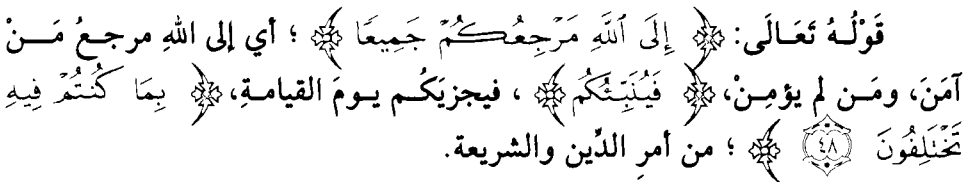 قَوْلُـهُ تَعَـالَى: ﴿ إِلَى ٱللَّهِ مَرْجِعُكُمْ جَمِيعًا ﴾ ؛ أي إلى اللهِ مرجـعُ مَـنْ
آمَنَ، ومَـن لم يؤمِـنْ، ﴿ فَيُنَبِّئُكُم ﴾ ، فيجزيَكُـم يـومَ القيامـةِ، ﴿ بِمَا كُنتُمْ فِيهِ
تَخْتَلِفُونَ ٤٨ ﴾ ؛ من أمرِ الدِّين والشريعة.